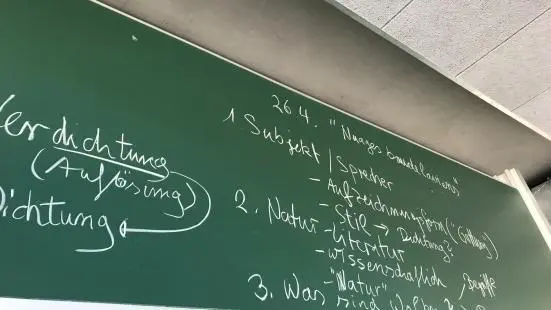 Verdichtung
(Auflösung)
Dichtung
26.4. "Nuages
1 Subjekt / Sprecher
- Aufzeichnungsform ("Gattung")
- Stil → Dichtung?
2. Natur - Literatur
- wissenschaftlich, Begriffe
- "Natur"
3. Was sind Wolken